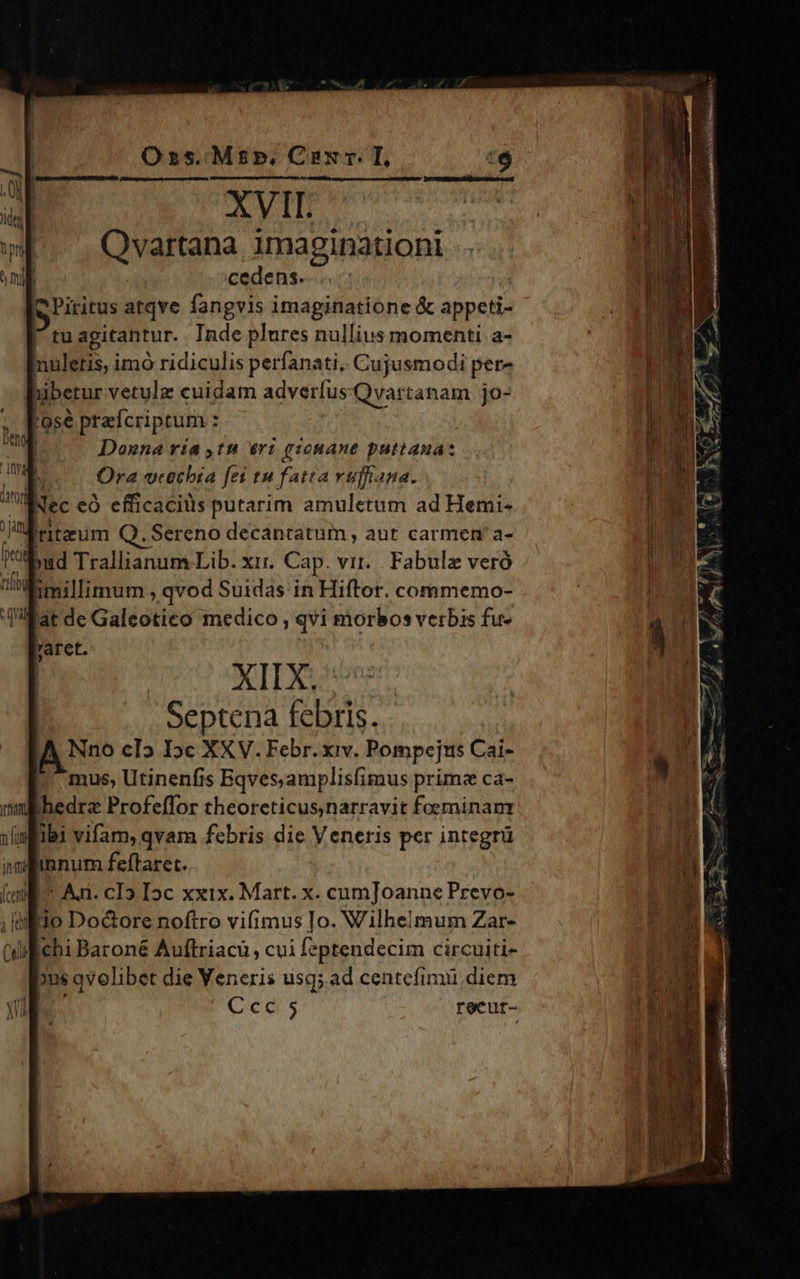 Obs. Med. Cent. I. 9
XVII.
Qvartana imaginationi
cedens.
SPiritus atqve ſangvis imaginatione & appeti-
tu agitantur. Inde plures nullius momenti a-
muletis, imò ridiculis perſanati. Cujusmodi per-
hibetur vetulæ cuidam adverſus Qvartanam jo-
cosè præſcriptum:
Donna ria, tu eri giouane puttana:
Ora vecchia ſei tu fatta ruffiana.
Nec eò efficaciùs putarim amuletum ad Hemi-
tritæum Q. Sereno decantatum, aut carmen a-
pud Trallianum Lib. XII. Cap. VII. Fabulæ verò
ſimillimum, qvod Suidas in Hiſtor. commemo-
rat de Galeotico medico, qvi morbos verbis fu-
garet.
XIIX.
Septena febris.
ANno cIↃ IↃc XXV. Febr. XIV. Pompejus Cai-
mus, Utinenſis Eqves, amplisſimus primæ ca-
thedræ Profeſſor theoreticus, narravit fœminam
ſibi viſam, qvam febris die Veneris per integrū
annum feſtaret.
* An. cIↃ IↃc XXIX. Mart. X. cum Joanne Prevo-
tio Doctore noſtro viſimus Jo. Wilhelmum Zar-
chi Baronē Auſtriacū, cui ſeptendecim circuiti-
bus qvolibet die Veneris usq; ad centeſimū diem
Ccc 5 recur-